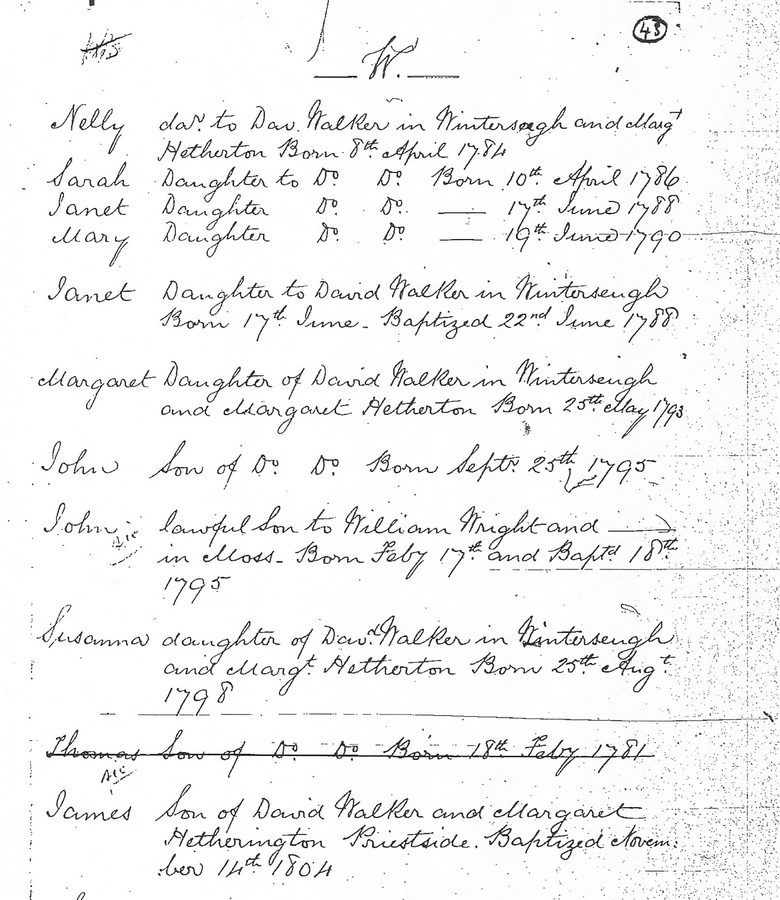 43
W.
Nelly daṛ. to Dav. Walker in Winterseugh and Margt
Hetherton Born 8th April 1784
Sarah Daughter to Do. Do. Born 10th April 1786
Janet Daughter Do. Do. — 17th June 1788
Mary Daughter Do. Do. — 19th June 1790
Janet Daughter to David Walker in Winterseugh
Born 17th June - Baptized 22nd June 1788
Margaret Daughter of David Walker in Winterseugh
and Margaret Hetherton Born 25th May 1793
John Son of Do. Do. Born Septr. 25th 1795
John lawful Son to William Wright and —
sic
in Moss - Born Feby 17th and Baptd 18th
1795
Susanna daughter of Davd. Walker in Winterseugh
and Margt. Hetherton Born 25th Augt.
1798
Thomas Son of Do. Do. Born 18th Feby 1781
sic
James Son of David Walker and Margaret
Hetherington Priestside. Baptized Novem:
ber 14th 1804